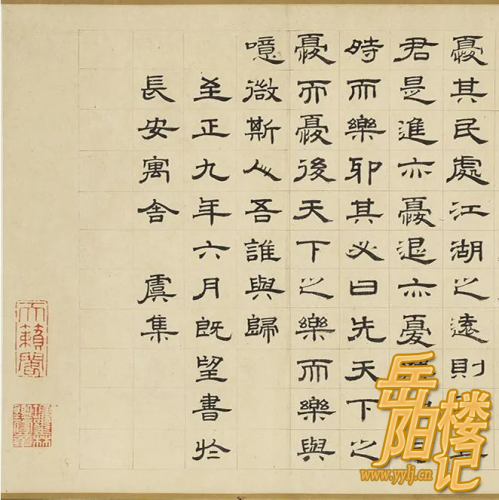 憂其民處江湖之遠則
君是進亦憂退亦憂
時而樂耶其必曰先天下之
憂而憂後天下之樂而樂與
噫微斯人吾誰與歸
至正九年六月既望書於
長安寓舍 虞集
天籟閣
岳阳楼记
www.yylj.cn